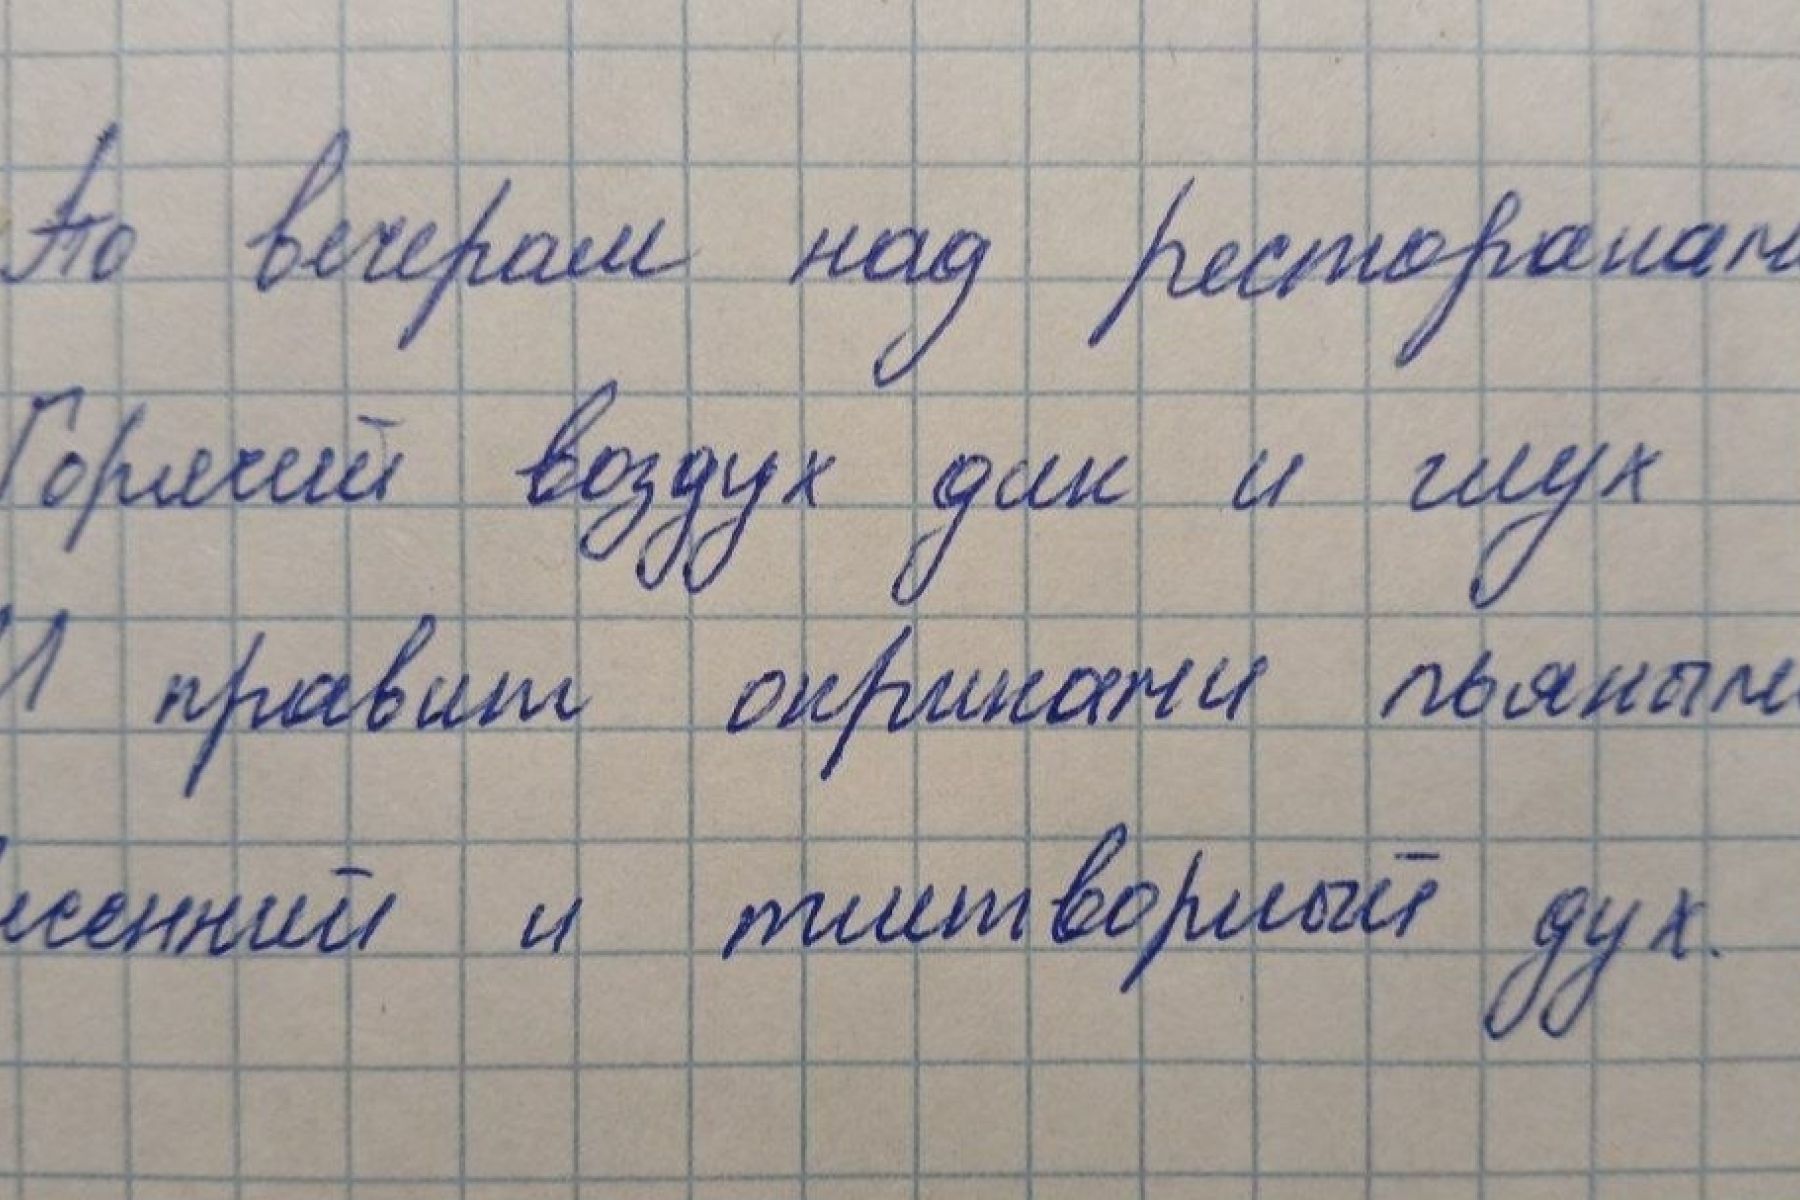 По вечерам над ресторанам
Горячий воздух дик и глух
И правит окриками пьяным
Весенний и тлетворный дух.